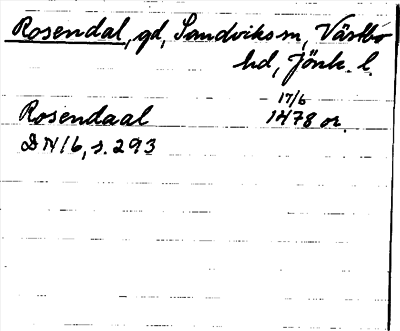 Rosendal, gd, Sandviks sn, Västbo
hd, Jönk. l.
17/6
Rosendaal 1478 or.
DN 16, s. 293